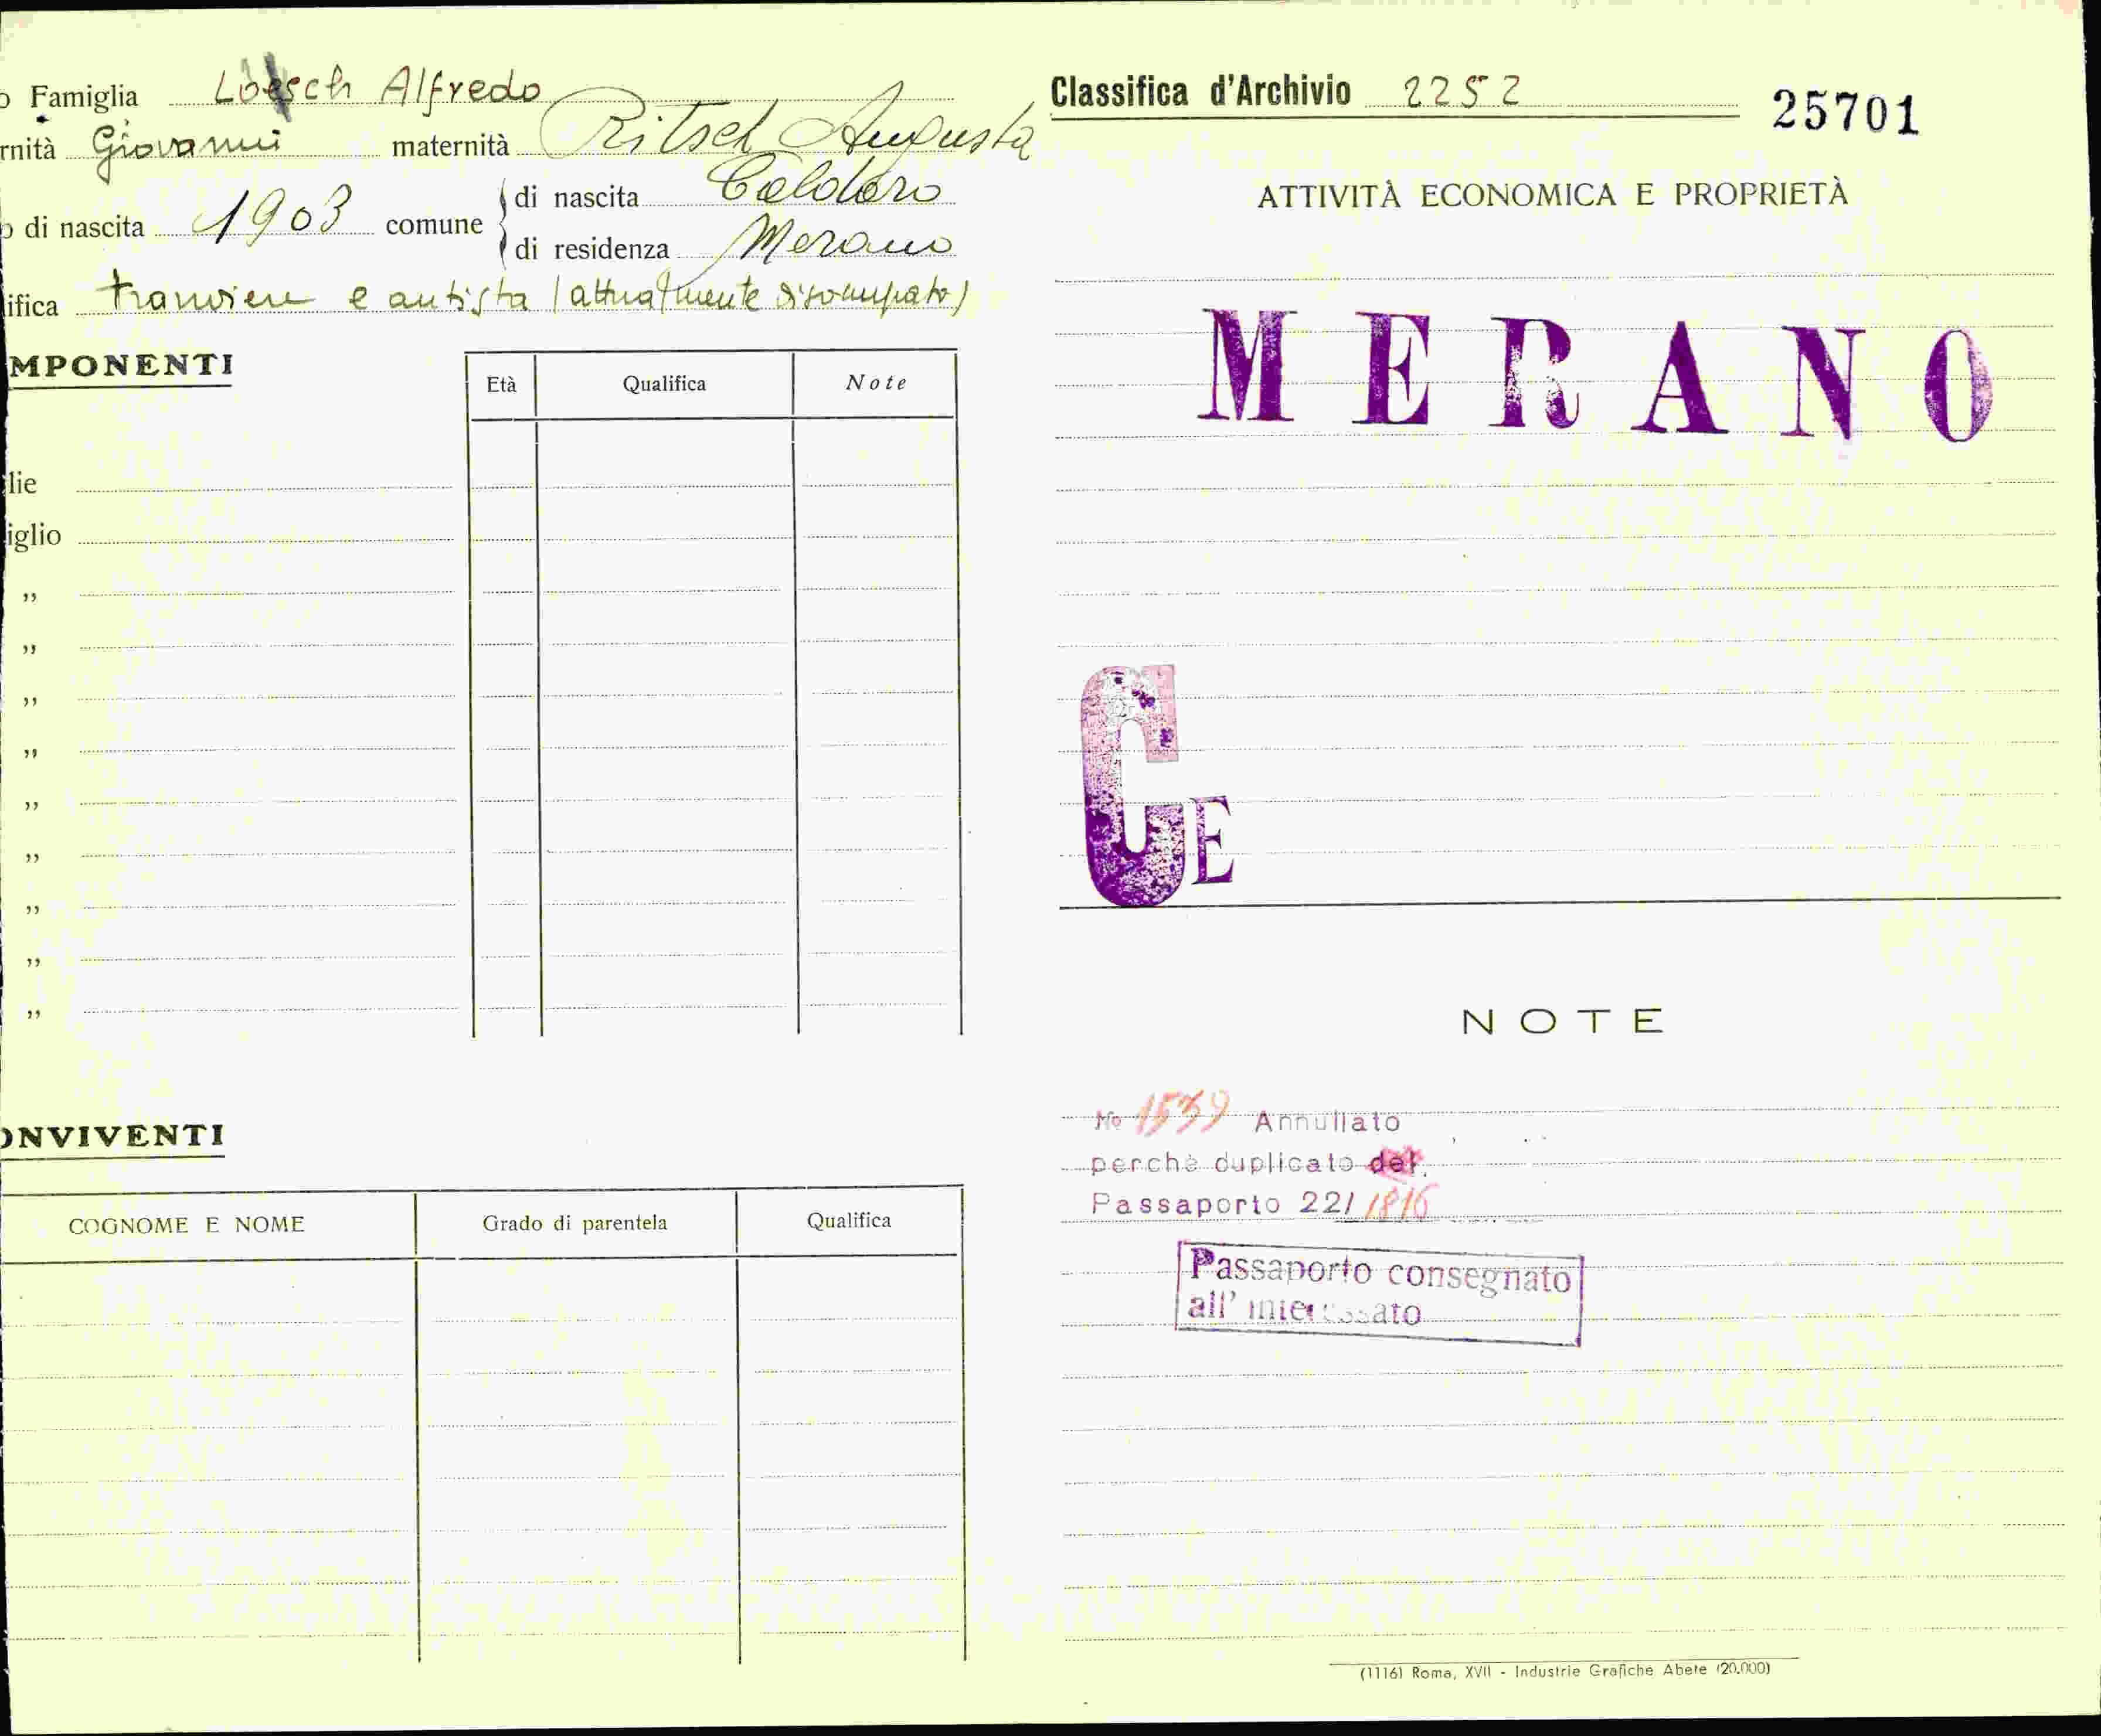 o Famiglia Loesch Alfredo
rnità Giovanni maternità Ritsch Augusta
o di nascita 1903 comune di nascita Caldaro
di residenza Merano
ifica tranviere e autista (attualmente disoccupato)
MPONENTI
Età Qualifica Note
lie
iglio
„
„
„
„
„
„
„
„
„
ONVIVENTI
COGNOME E NOME Grado di parentela Qualifica
Classifica d'Archivio 2252
25701
ATTIVITÀ ECONOMICA E PROPRIETÀ
MERANO
C E
NOTE
No 1539 Annullato
perchè duplicato del
Passaporto 22/1816
Passaporto consegnato
all' interessato
(1116) Roma, XVII - Industrie Grafiche Abete (20.000)